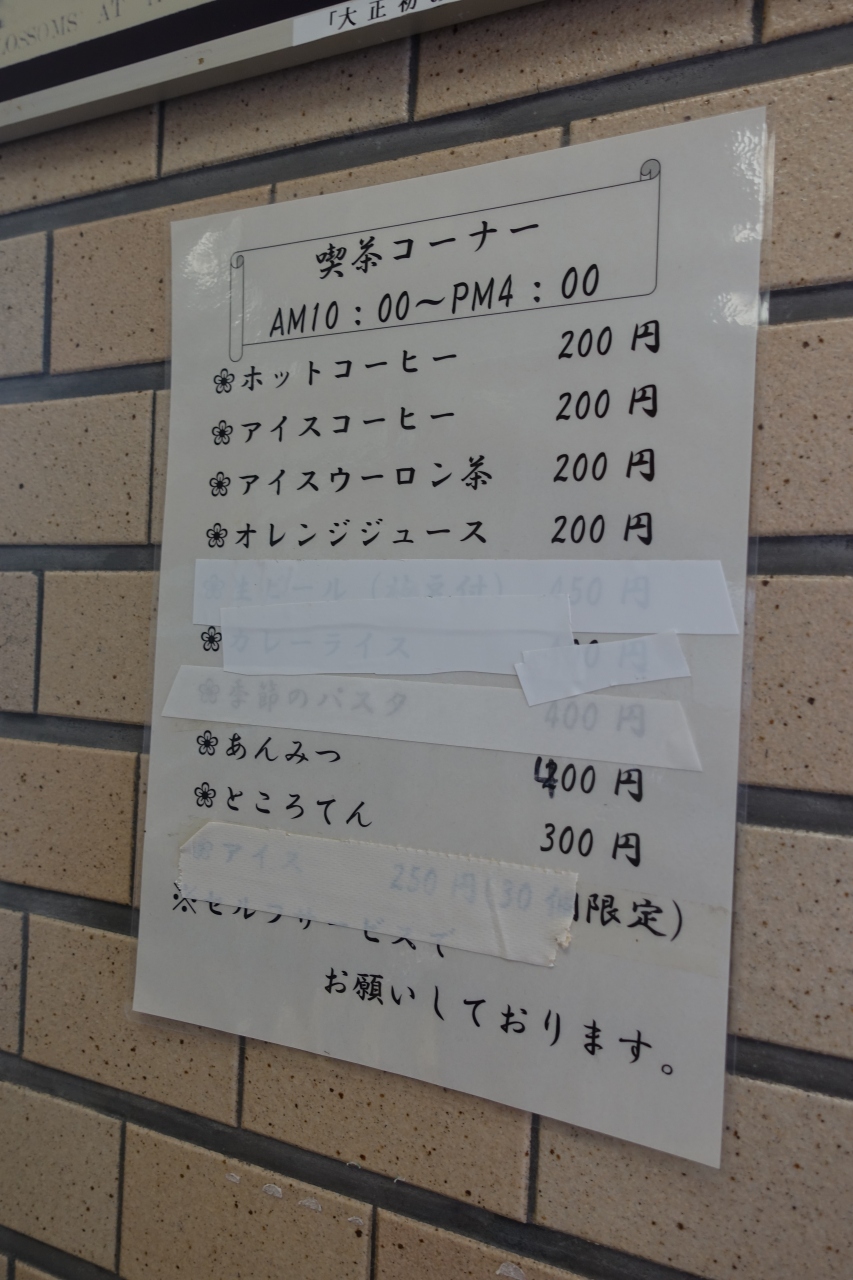 LOSSOMS AT
「大正初
喫茶コーナー
AM10：00～PM4：00
ホットコーヒー 200円
アイスコーヒー 200円
アイスウーロン茶 200円
オレンジジュース 200円
生ビール（枝豆付） 450円
カレーライス 0円
季節のパスタ 400円
あんみつ 400円
ところてん 300円
アイス 250円(30個限定)
※セルフサービスで
お願いしております。